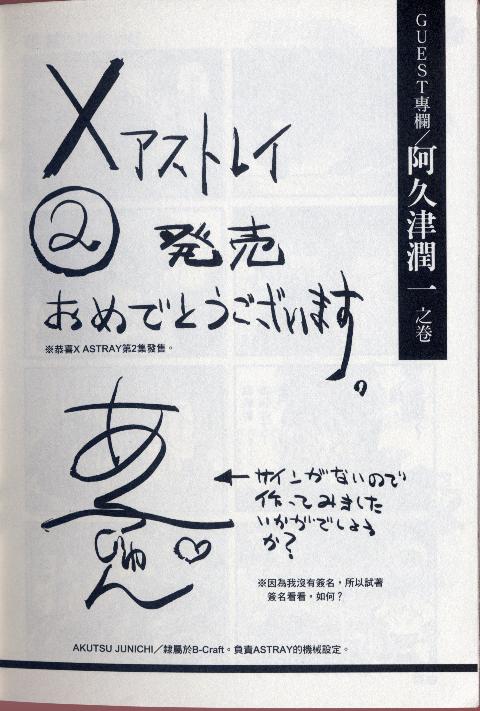 GUEST專欄／阿久津潤一 之卷
Xアストレイ
② 発売
おめでとうございます。
※恭喜X ASTRAY第2集發售。
サインがないので
作ってみました
いかがでしょう
か？
※因為我沒有簽名，所以試著
簽名看看，如何？
AKUTSU JUNICHI／隸屬於B-Craft。負責ASTRAY的機械設定。